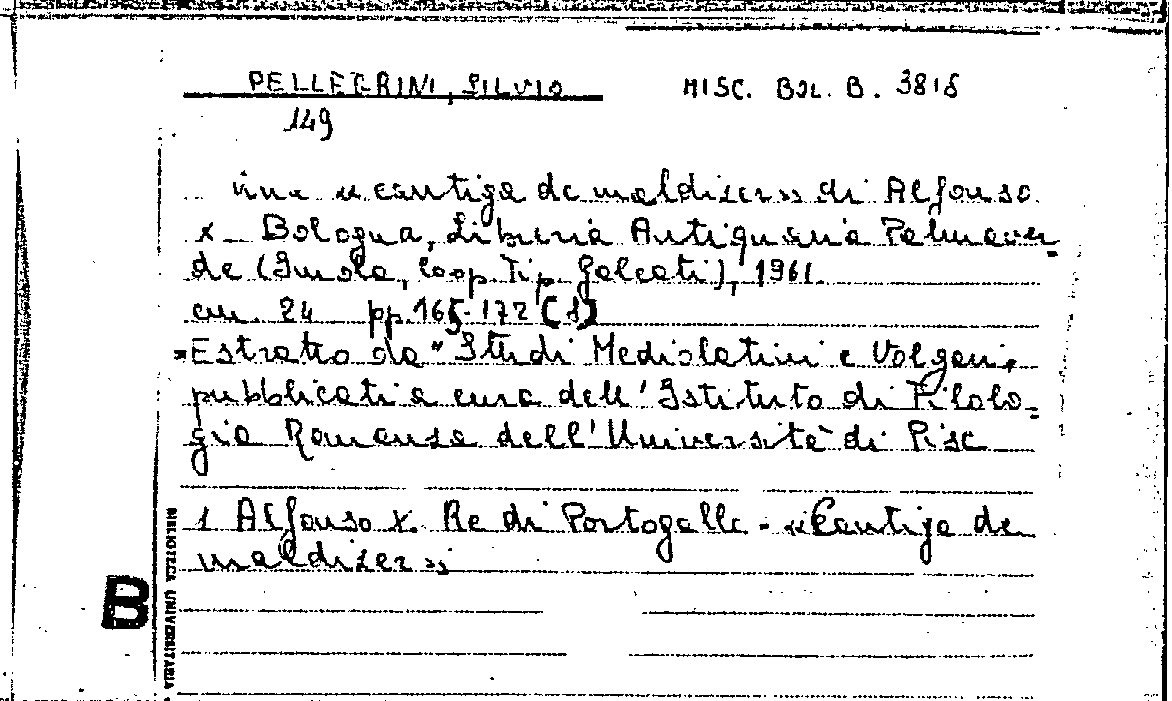 PELLEGRINI, SILVIO MISC. BOL. B. 3818
149
Una « cantiga de maldizer » di Alfonso
X - Bologna, Libreria Antiquaria Palmaver=
de (Imola, Coop. Tip. Galeati), 1961.
cm. 24 pp. 165-172 (8)
"Estratto da "Studi Mediolatini e Volgari,
pubblicati a cura dell'Istituto di Filolo=
gia Romanza dell'Università di Pisa
1 Alfonso X. Re di Portogallo - «Cantiga de
maldizer»
B
BIBLIOTECA UNIVERSITARIA